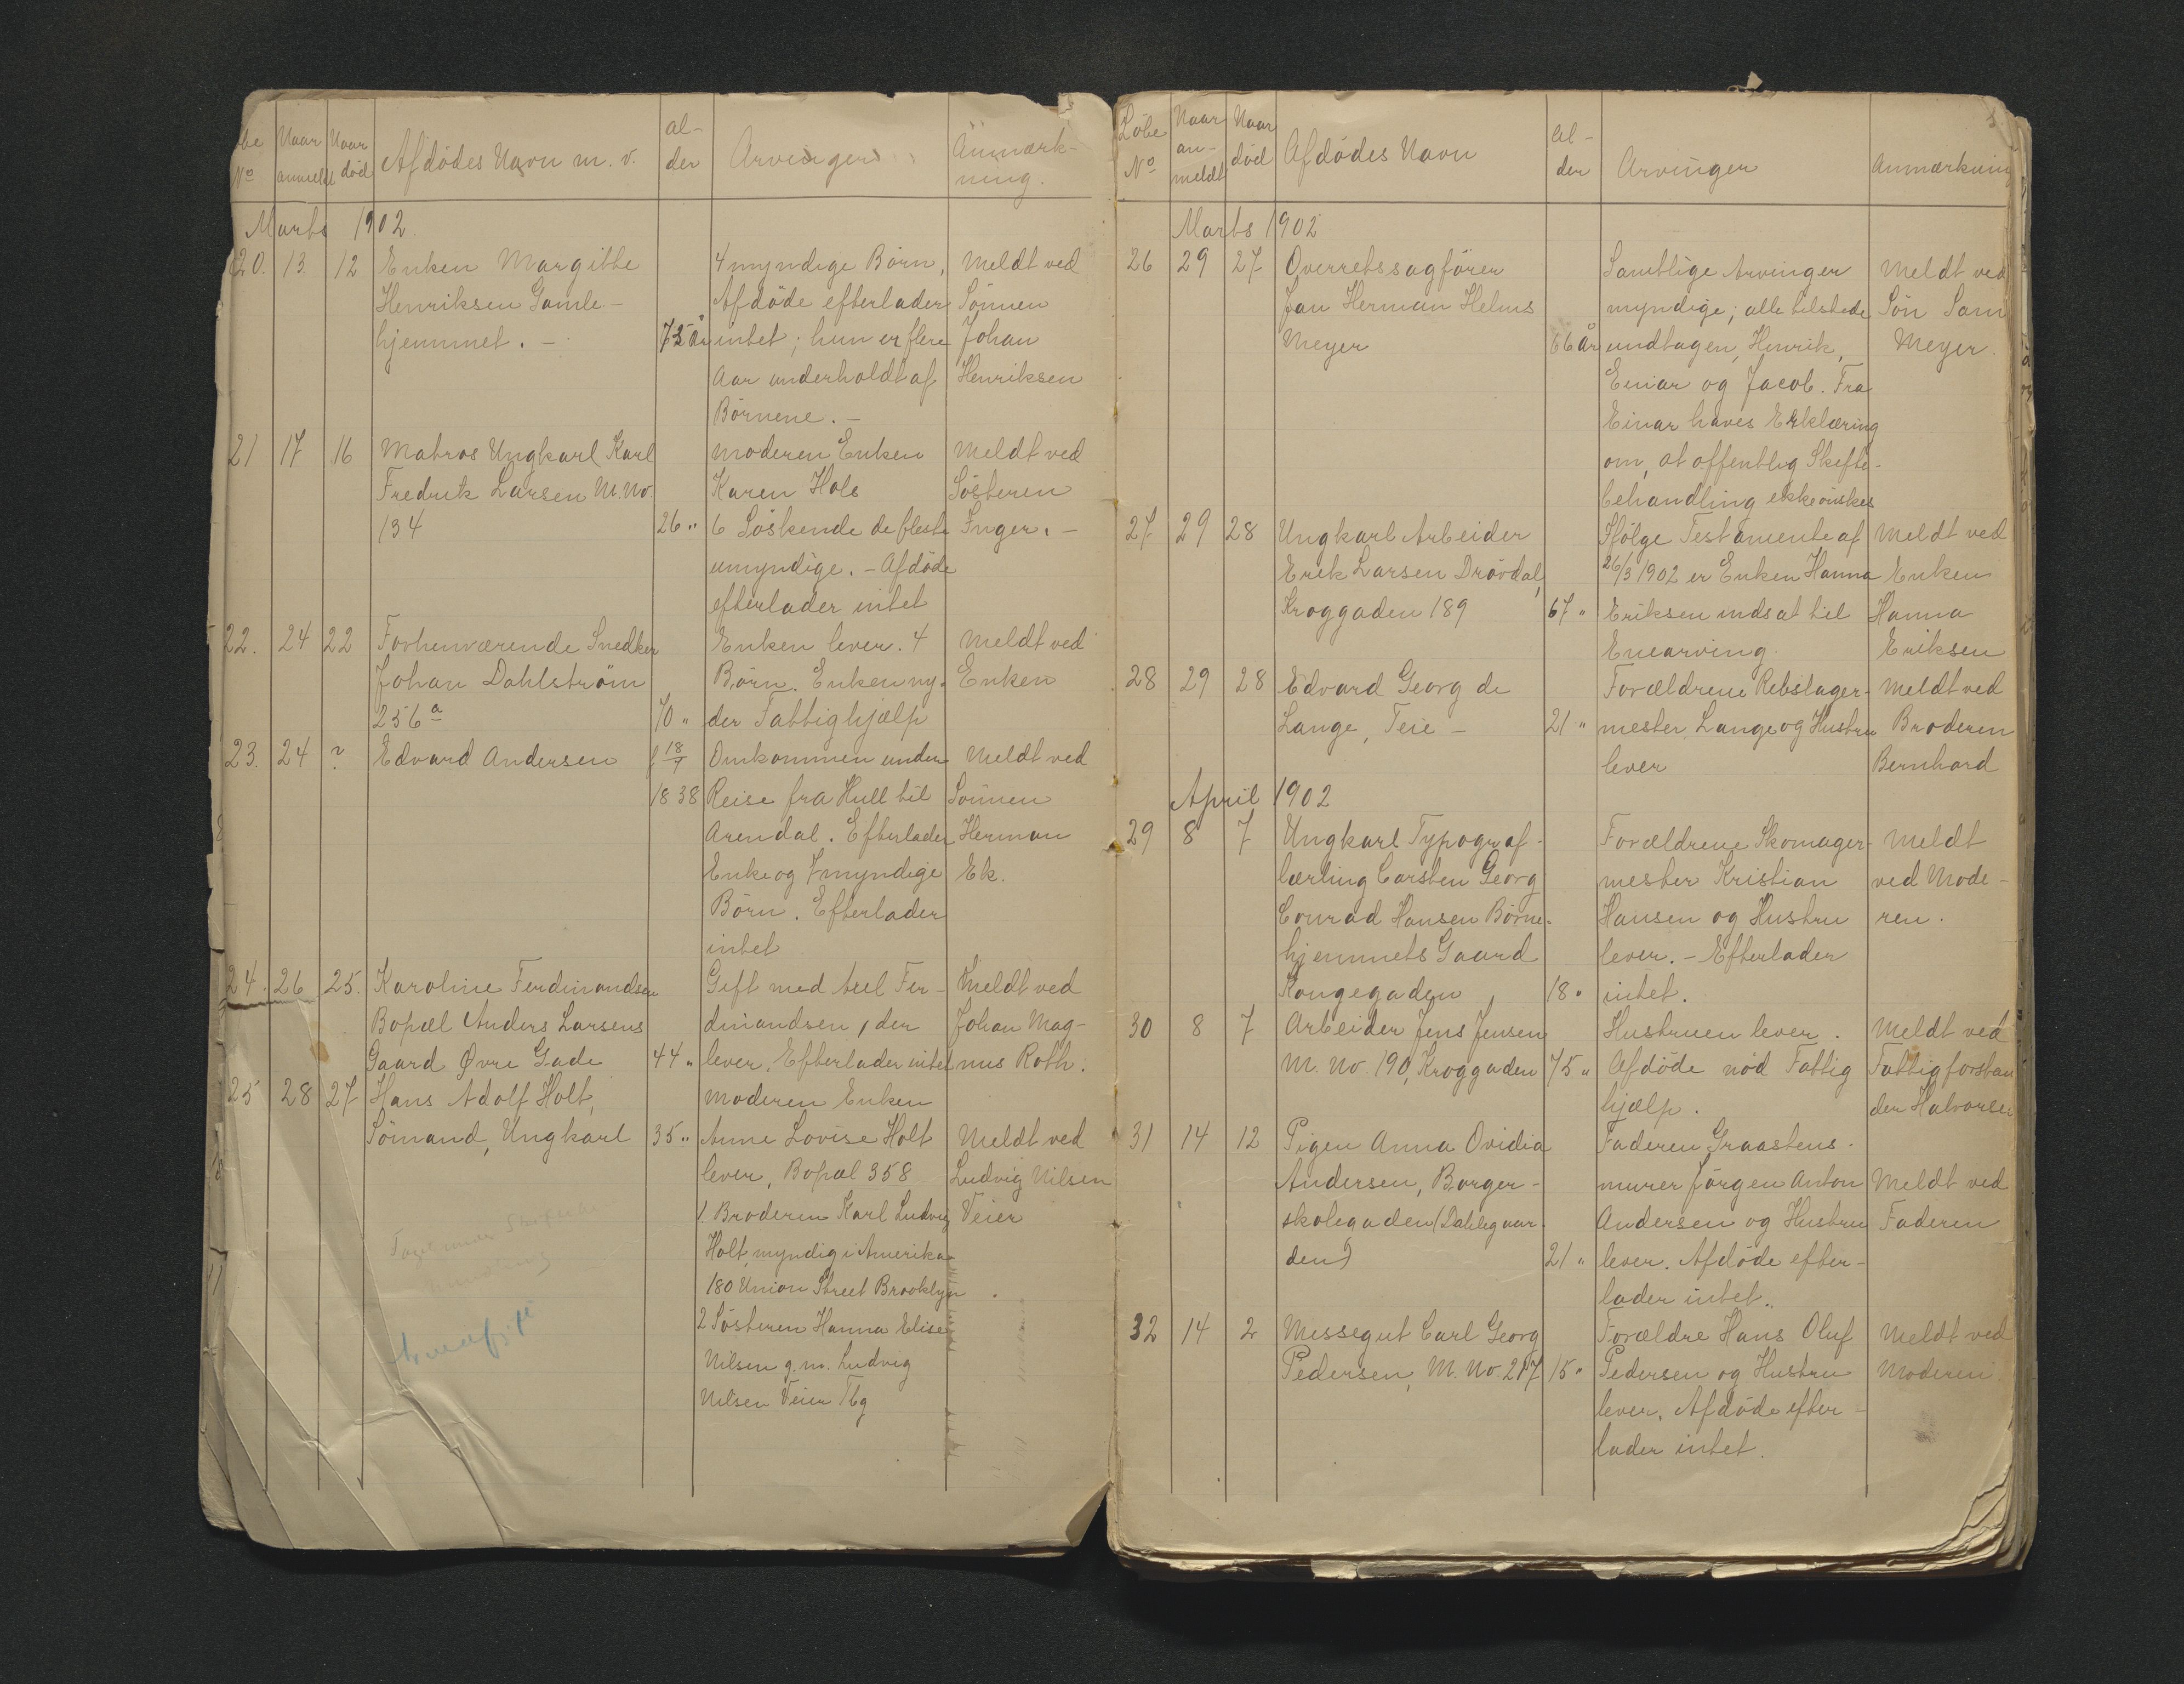 Naar Naar Afdödes Navn m. v. al- Arvinger Anmærk-
No anmeldt död der ning.
Marts 1902.
20. 13. 12 Enken Margitte 4 myndige Börn, Meldt ved
Henriksen Gamle- Afdöde efterlader Sönnen
hjemmet. – 75 Aar intet; hun er flere Johan
Aar underholdt af Henriksen
Börnene. –
21 17 16 Matros Ungkarl Karl Moderen Enken Meldt ved
Fredrik Larsen M. No. Karen Hols Sösteren
134 26 " 6 Söskende de fleste Inger. –
umyndige. – Afdöde
efterlader intet
22. 24 22 Forhenværende Snedker Enken lever. 4 Meldt ved
Johan Dahlström Börn. Enken ny- Enken
256 a 70 " der Fattighjælp
23. 24 ? Edvard Andersen f 18/7 Omkommen under Meldt ved
1838 Reise fra Hull til Sönnen
Arendal. Efterlader Herman
Enke og 7 myndige Ek.
Börn. Efterlader
intet
24. 26 25. Karoline Ferdinandsen Gift med Axel Fer- Meldt ved
Bopæl Anders Larsens dinandsen, der Johan Mag-
Gaard Øvre Gade 44 " lever. Efterlader intet nus Roth.
25 28 27 Hans Adolf Holt, Moderen Enken
Sömand, Ungkarl 35 " Anne Lovise Holt Meldt ved
lever, Bopæl 358 Ludvig Nilsen
1. Broderen Karl Ludvig Veier
Holt, myndig i Amerika
180 Union Street Brooklyn
2 Sösteren Hanna Elise
Nilsen g. m. Ludvig
Nilsen Veier Tbg
Löbe Naar Naar Afdödes Navn al- Arvinger Anmærkning
No an- död der
meldt
Marts 1902
26 29 27 Overretssagförer Samtlige Arvinger Meldt ved
Jan Herman Helms myndige; alle tilstede Sön Sam
Meyer 66 Aar undtagen, Henrik, Meyer.
Einar og Jacob. Fra
Einar haves Erklæring
om, at offentlig Skifte-
behandling ikke önskes
27 29 28 Ungkarl Arbeider Ifölge Testamente af Meldt ved
Erik Larsen Drövdal, 26/3 1902 er Enken Hanna Enken
Kroggaden 189 67 " Eriksen indsat til Hanna
Enearving. Eriksen
28 29 28 Edvard Georg de Forældrene Rebslager- Meldt ved
Lange, Teie – 21 " mester Lange og Hustru Broderen
lever Bernhard
April 1902
29 8 7 Ungkarl Typograf- Forældrene Skomager- Meldt
lærling Carsten Georg mester Kristian ved Mode-
Conrad Hansen Börne- Hansen og Hustru ren.
hjemmets Gaard lever. – Efterlader
Kongegaden 18 " intet.
30 8 7 Arbeider Jens Jensen Hustruen lever. Meldt ved
M. No. 190, Kroggaden 75 " Afdöde nöd Fattig Fattigforstan
hjælp. der Halvorsen
31 14 12 Pigen Anna Ovidia Faderen Graastens-
Andersen, Borger- murer Jörgen Anton Meldt ved
skolegaden (Dahlegaar- Andersen og Hustru Faderen
den) 21 " lever. Afdöde efter-
lader intet.
32 14 2 Messegut Carl Georg Forældre Hans Oluf Meldt ved
Pedersen, M. No 217 15 " Pedersen og Hustru Moderen
lever. Afdöde efter-
lader intet.